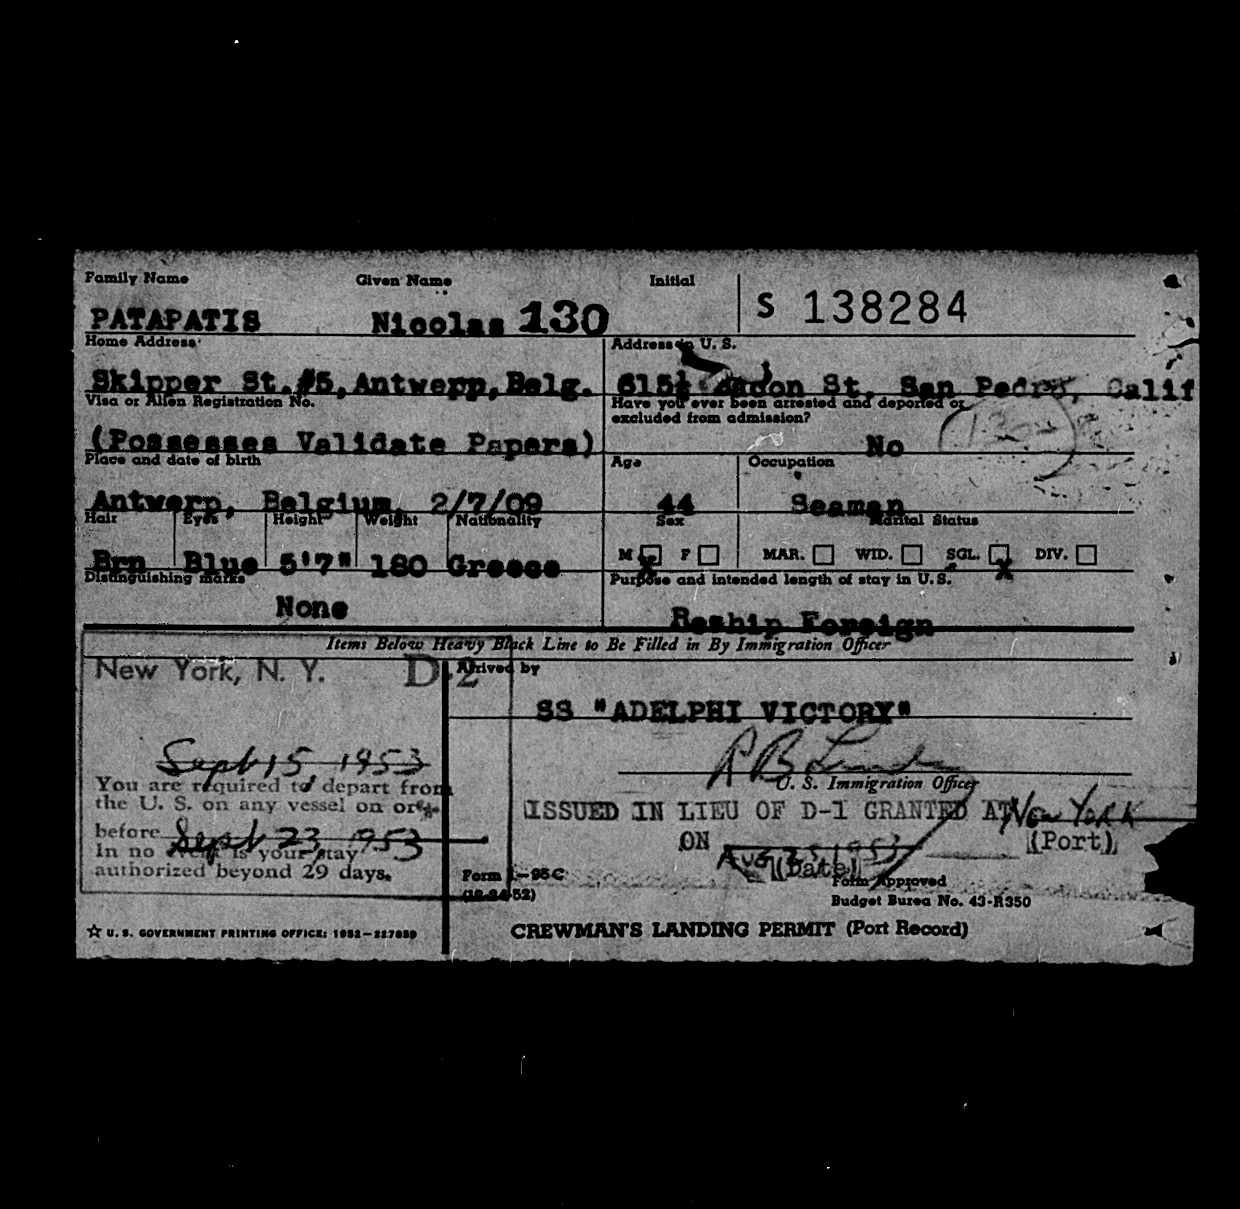 Family Name Given Name Initial
PATAPATIS Nicolas 130 S 138284
Home Address Address in U. S.
Skipper St.#5, Antwepp, Belg. 615½ St, San Pedro, Calif
Visa or Alien Registration No. Have you ever been arrested and deported or
excluded from admission?
(Possesses Validate Papers) No
Place and date of birth Age Occupation
Antwerp, Belgium, 2/7/09 44 Seaman
Hair Eyes Height Weight Nationality Sex Marital Status
Brn Blue 5'7" 180 Greece M X F MAR. WID. SGL. X DIV.
Distinguishing marks Purpose and intended length of stay in U. S.
None Reship Foreign
Items Below Heavy Black Line to Be Filled in By Immigration Officer
New York, N. Y. D-2 Arrived by
SS "ADELPHI VICTORY"
Sept 15 1953
U. S. Immigration Officer
You are required to depart from
the U. S. on any vessel on or
before Sept 23, 1953
In no event is your stay
authorized beyond 29 days.
ISSUED IN LIEU OF D-1 GRANTED AT New York
ON Aug 25 1953 (Port)
(Date)
Form I-95C
(12-24-52)
Form Approved
Budget Burea No. 43-R350
☆ U. S. GOVERNMENT PRINTING OFFICE: 1952—227689 CREWMAN'S LANDING PERMIT (Port Record)